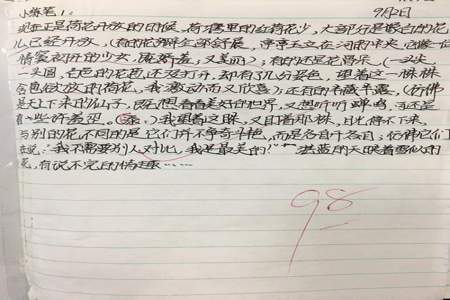 小练笔1.
9月2日
现在正是荷花开放的时候,荷塘里的红荷花少,大部分是
儿已经开放,(有的花瓣全部舒展,亭亭玉立在河的中央,它像一位
情窦初开的少女,
又美丽);有的还是花骨朵(一头尖
一头圆,白色的花苞还没打开,却有了几分姿色,望着这一株株
含苞欲放的荷花,我激动而又欣喜);还有的半藏半露,(仿佛
是天上下来的仙子,既想看看美好的世界,又想听听蝉鸣,可还是
有一些许羞涩。我望着这株,又盯着那株,目光停不下来,
与别的花不同的是,它们并不争奇斗艳,而是各自开各自,仿佛它们
在说:“我不需要别人对比,我是最美的!”湛蓝的天映着雪似的
花,有说不完的诗意……
98